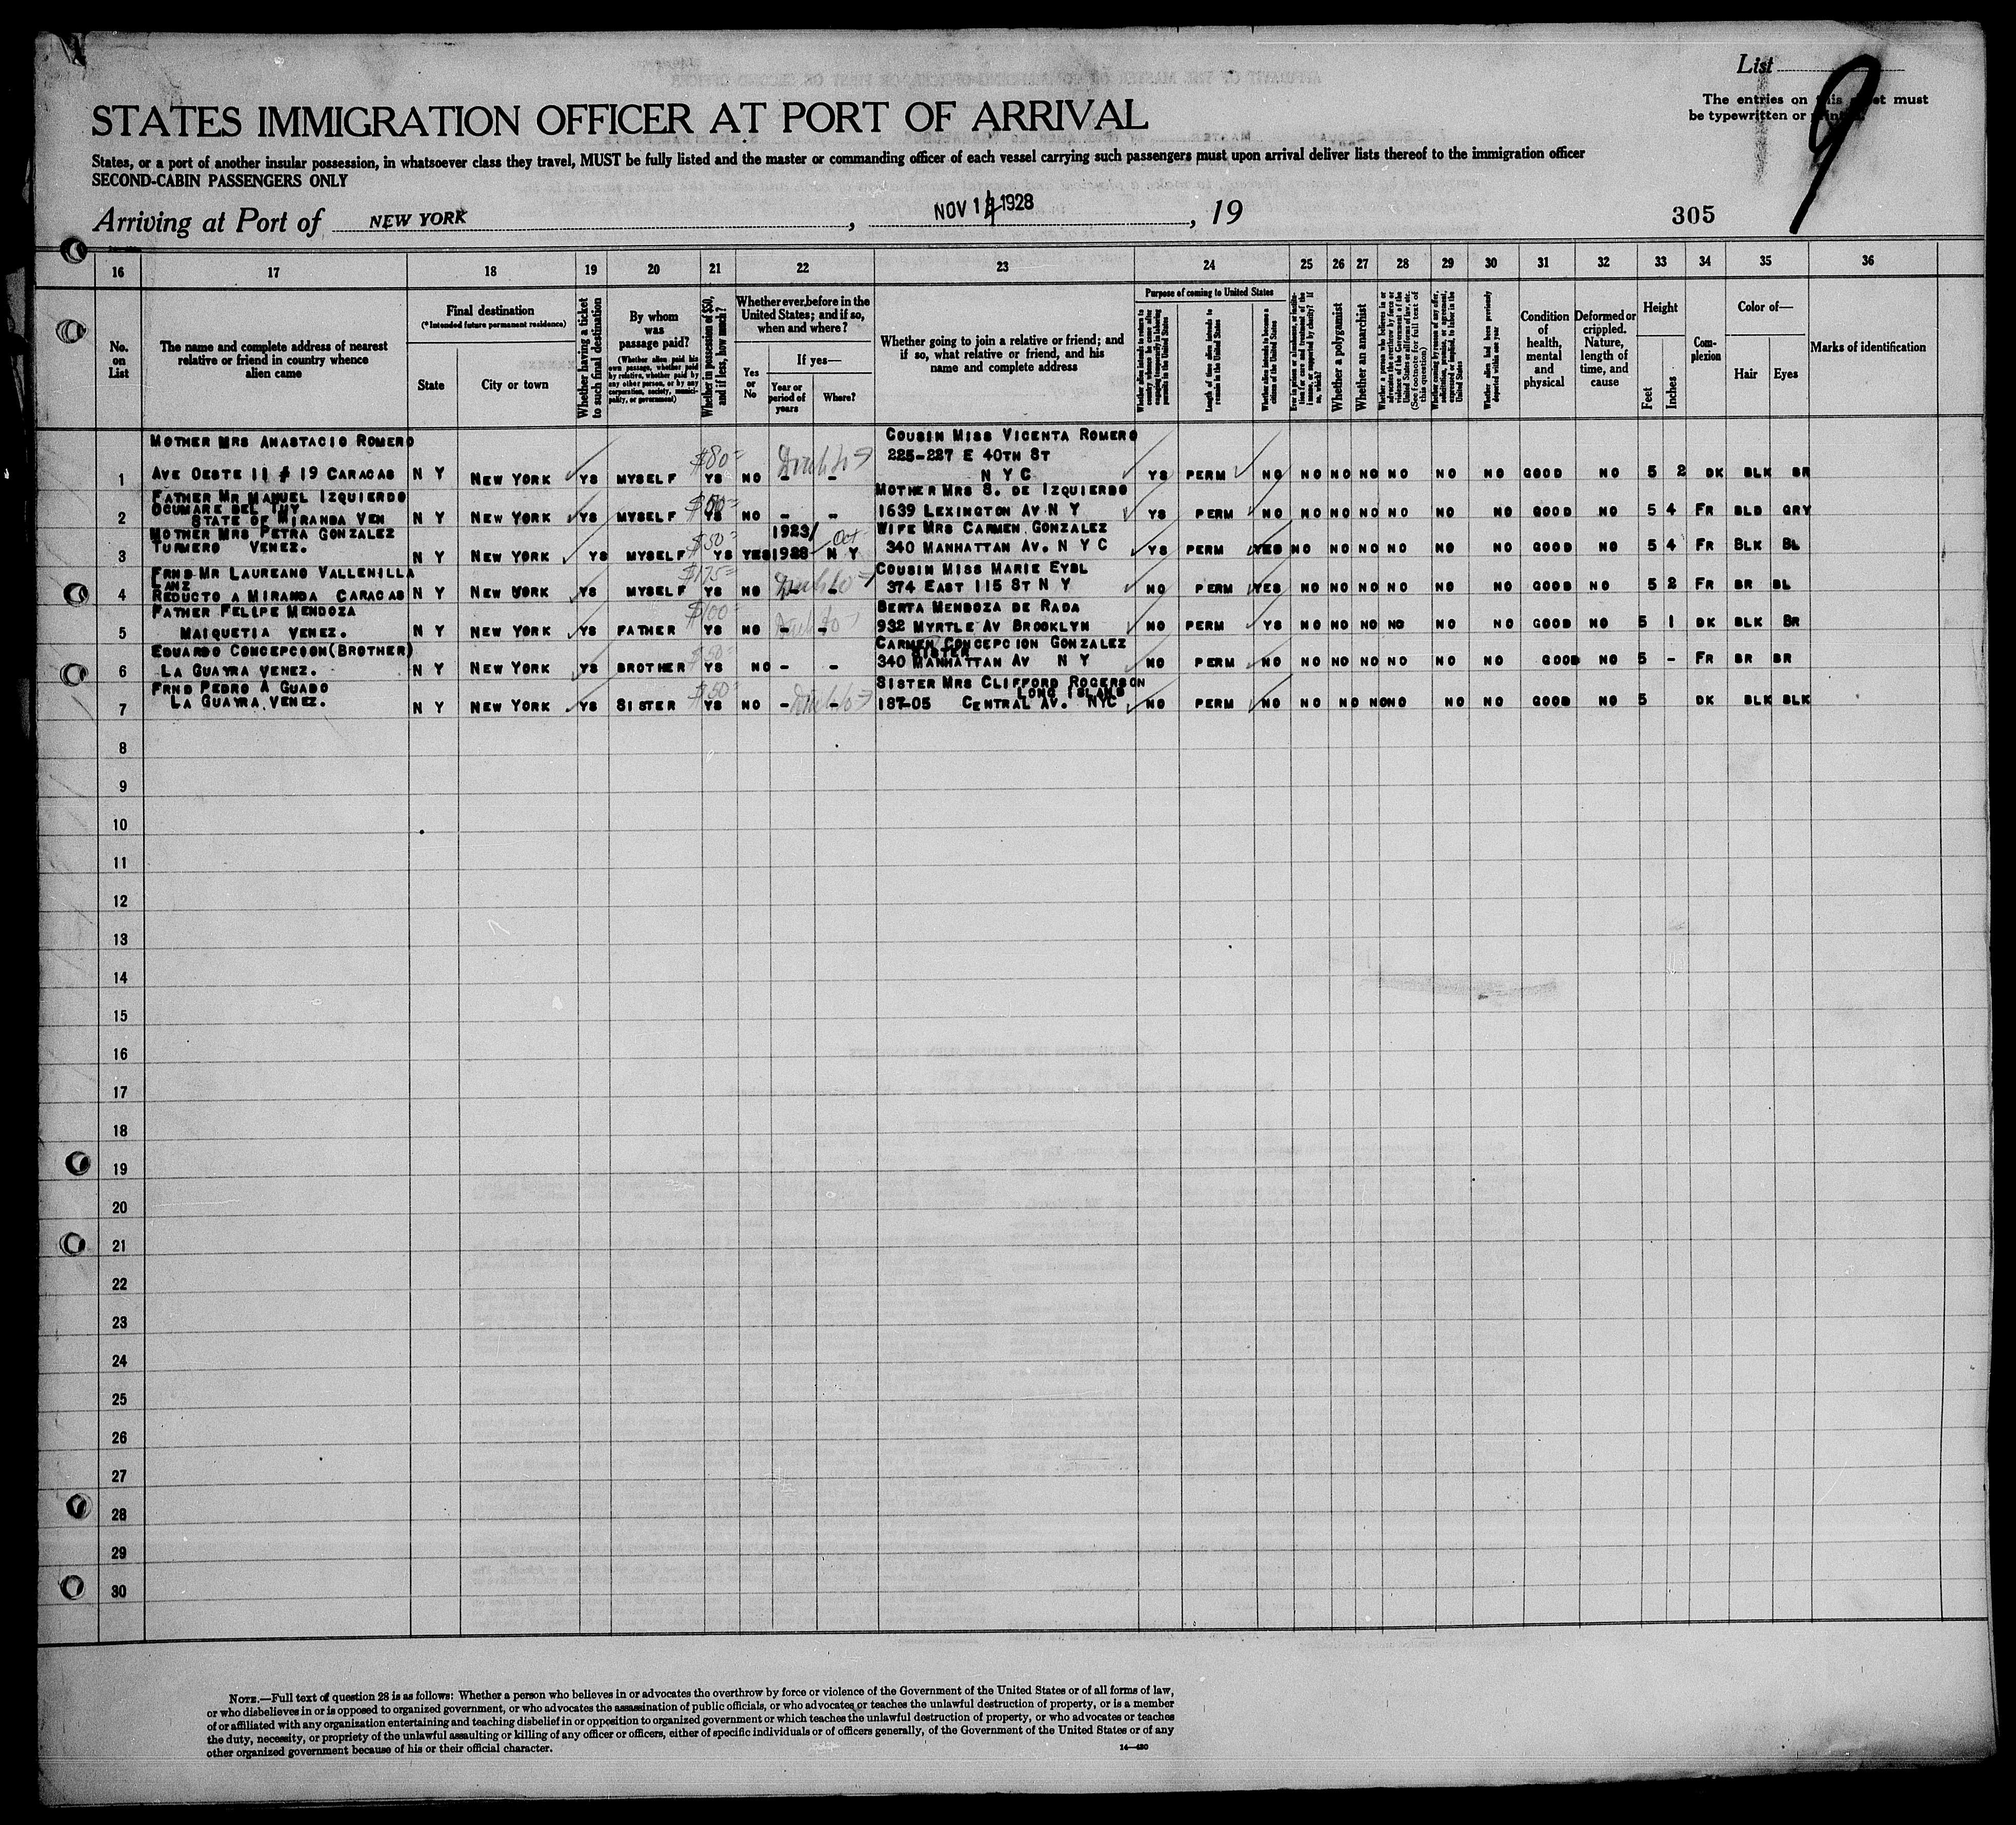 List
The entries on this sheet must
be typewritten or printed.
9
STATES IMMIGRATION OFFICER AT PORT OF ARRIVAL
States, or a port of another insular possession, in whatsoever class they travel, MUST be fully listed and the master or commanding officer of each vessel carrying such passengers must upon arrival deliver lists thereof to the immigration officer
SECOND-CABIN PASSENGERS ONLY
Arriving at Port of NEW YORK, NOV 1 1928, 19
305
16 17 18 19 20 21 22 23 24 25 26 27 28 29 30 31 32 33 34 35 36
No. on List
The name and complete address of nearest relative or friend in country whence alien came
Final destination
(*Intended future permanent residence)
State
City or town
Whether having a ticket to such final destination
By whom was passage paid?
(Whether alien paid his own passage, whether paid by relative, whether paid by any other person, or by any corporation, society, municipality, or government)
Whether in possession of $50, and if less, how much?
Whether ever before in the United States; and if so, when and where?
Yes or No
If yes—
Year or period of years
Where?
Whether going to join a relative or friend; and if so, what relative or friend, and his name and complete address
Purpose of coming to United States
Length of time alien intends to remain in the United States
Whether alien intends to become a citizen of the United States
Whether a polygamist
Whether an anarchist
(See footnote for full text of this question)
Condition of health, mental and physical
Deformed or crippled. Nature, length of time, and cause
Height
Feet
Inches
Complexion
Color of—
Hair
Eyes
Marks of identification
MOTHER MRS ANASTACIO ROMERO COUSIN MISS VICENTA ROMERO
225-227 E 40TH ST
1 AVE OESTE 11 # 19 CARACAS N Y NEW YORK YS MYSELF $80 YS NO - - N Y C YS PERM NO NO NO NO NO NO NO GOOD NO 5 2 DK BLK BR
FATHER MR MANUEL IZQUIERDO MOTHER MRS S. DE IZQUIERDO
OCUMARE DEL TUY
2 STATE OF MIRANDA VEN N Y NEW YORK YS MYSELF YS NO - - 1639 LEXINGTON AV N Y YS PERM NO NO NO NO NO NO NO GOOD NO 5 4 FR BLD GRY
MOTHER MRS PETRA GONZALEZ 1923/ Oct WIFE MRS CARMEN GONZALEZ
3 TURMERO VENEZ. N Y NEW YORK YS MYSELF $50 YS YES 1928 N Y 340 MANHATTAN AV. N Y C YS PERM YES NO NO NO NO NO NO GOOD NO 5 4 FR BLK BL
FRND MR LAUREANO VALLENILLA COUSIN MISS MARIE EYBL
LANZ
4 REDUCTO A MIRANDA CARACAS N Y NEW YORK YS MYSELF $175 YS NO - - 374 EAST 115 ST N Y NO PERM YES NO NO NO NO NO NO GOOD NO 5 2 FR BR BL
FATHER FELIPE MENDOZA BERTA MENDOZA DE RADA
5 MAIQUETIA VENEZ. N Y NEW YORK YS FATHER $100 YS NO - - 932 MYRTLE AV BROOKLYN NO PERM YS NO NO NO NO NO NO GOOD NO 5 1 DK BLK BR
EDUARDO CONCEPCION (BROTHER) CARMEN CONCEPCION GONZALEZ
SISTER
6 LA GUAYRA VENEZ. N Y NEW YORK YS BROTHER $50 YS NO - - 340 MANHATTAN AV N Y NO PERM NO NO NO NO NO NO NO GOOD NO 5 - FR BR BR
FRND PEDRO A GUADO SISTER MRS CLIFFORD ROGERSON
LONG ISLAND
7 LA GUAYRA VENEZ. N Y NEW YORK YS SISTER $50 YS NO - - 187-05 CENTRAL AV. NYC NO PERM NO NO NO NO NO NO NO GOOD NO 5 DK BLK BLK
8
9
10
11
12
13
14
15
16
17
18
19
20
21
22
23
24
25
26
27
28
29
30
NOTE.—Full text of question 28 is as follows: Whether a person who believes in or advocates the overthrow by force or violence of the Government of the United States or of all forms of law,
or who disbelieves in or is opposed to organized government, or who advocates the assassination of public officials, or who advocates or teaches the unlawful destruction of property, or is a member
of or affiliated with any organization entertaining and teaching disbelief in or opposition to organized government or which teaches the unlawful destruction of property, or who advocates or teaches
the duty, necessity, or propriety of the unlawful assaulting or killing of any officer or officers, either of specific individuals or of officers generally, of the Government of the United States or of any
other organized government because of his or their official character.
14—430